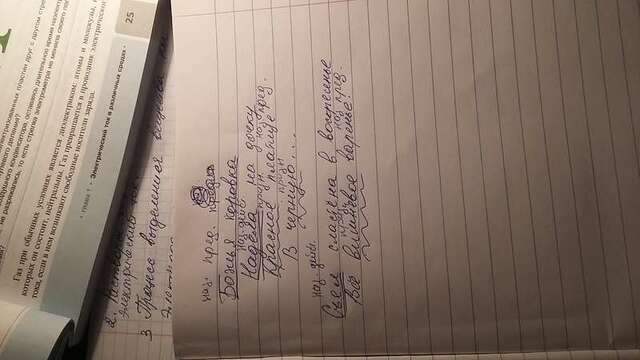 электризованных пластин друг с другом стрел
воздушного конденсатора, оставаясь длительное время неизмен
нулевого деления?
не разряжались, то есть стрелка электрометра не меняла своего по
Газ при обычных условиях является диэлектриком: атомы и молекулы, и
которых он состоит, нейтральны. Газ превращается в проводник электрическо
тока, если в нем возникают свободные носители заряда.
• глава 1 • Электрический ток в различных средах •
25
2.
Электрический ток
3 Процесс выделения вещества
Электро
наз. пред.
Божья коровка
наз. дейс.
Надела на дочку
призн наз. пред.
Красное платице
призн
В черную...
наз. дейс.
Съел сластёна в воскресенье
призн. наз пред.
Всё вишнёвое варенье.